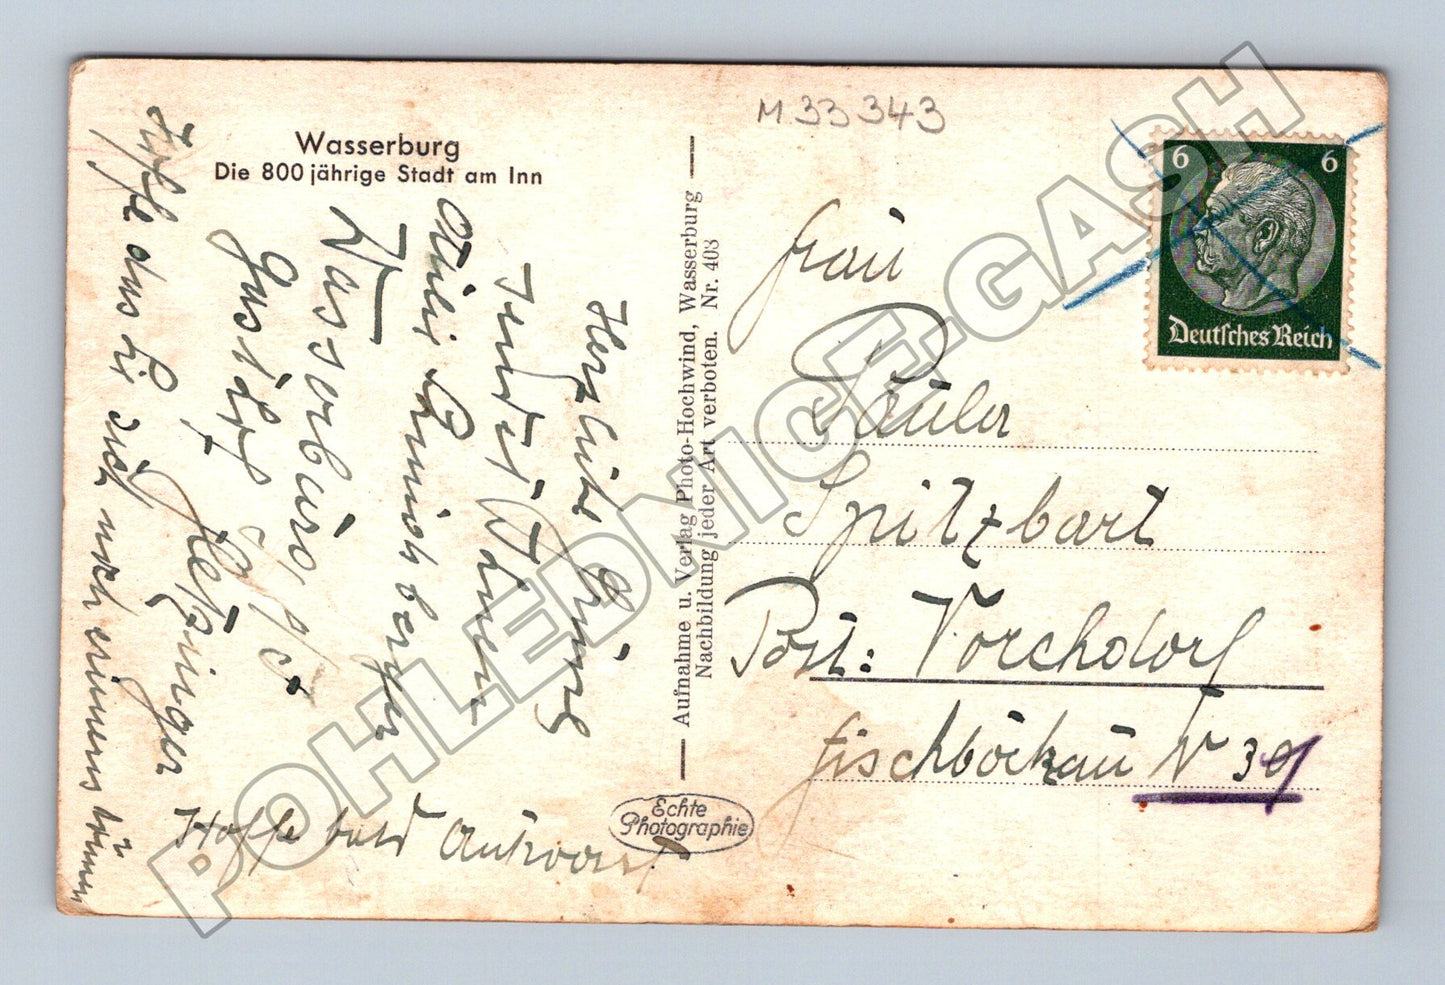 M 33 343
Wasserburg
Die 800 jährige Stadt am Inn
Herzliche Grüße
sendet Ihnen
Wasserburg
Gasthof
Hoffe bald Antwort
Hoffe das Sie sich noch erinern können
Aufnahme u. Verlag Photo-Hochwind, Wasserburg
Nachbildung jeder Art verboten. Nr. 403
Echte
Photographie
6 6
Deutsches Reich
Frau
Paula
Spitzbart
Post: Vorchdorf
Fischböckau N 39
POHLEDNICE.GASH